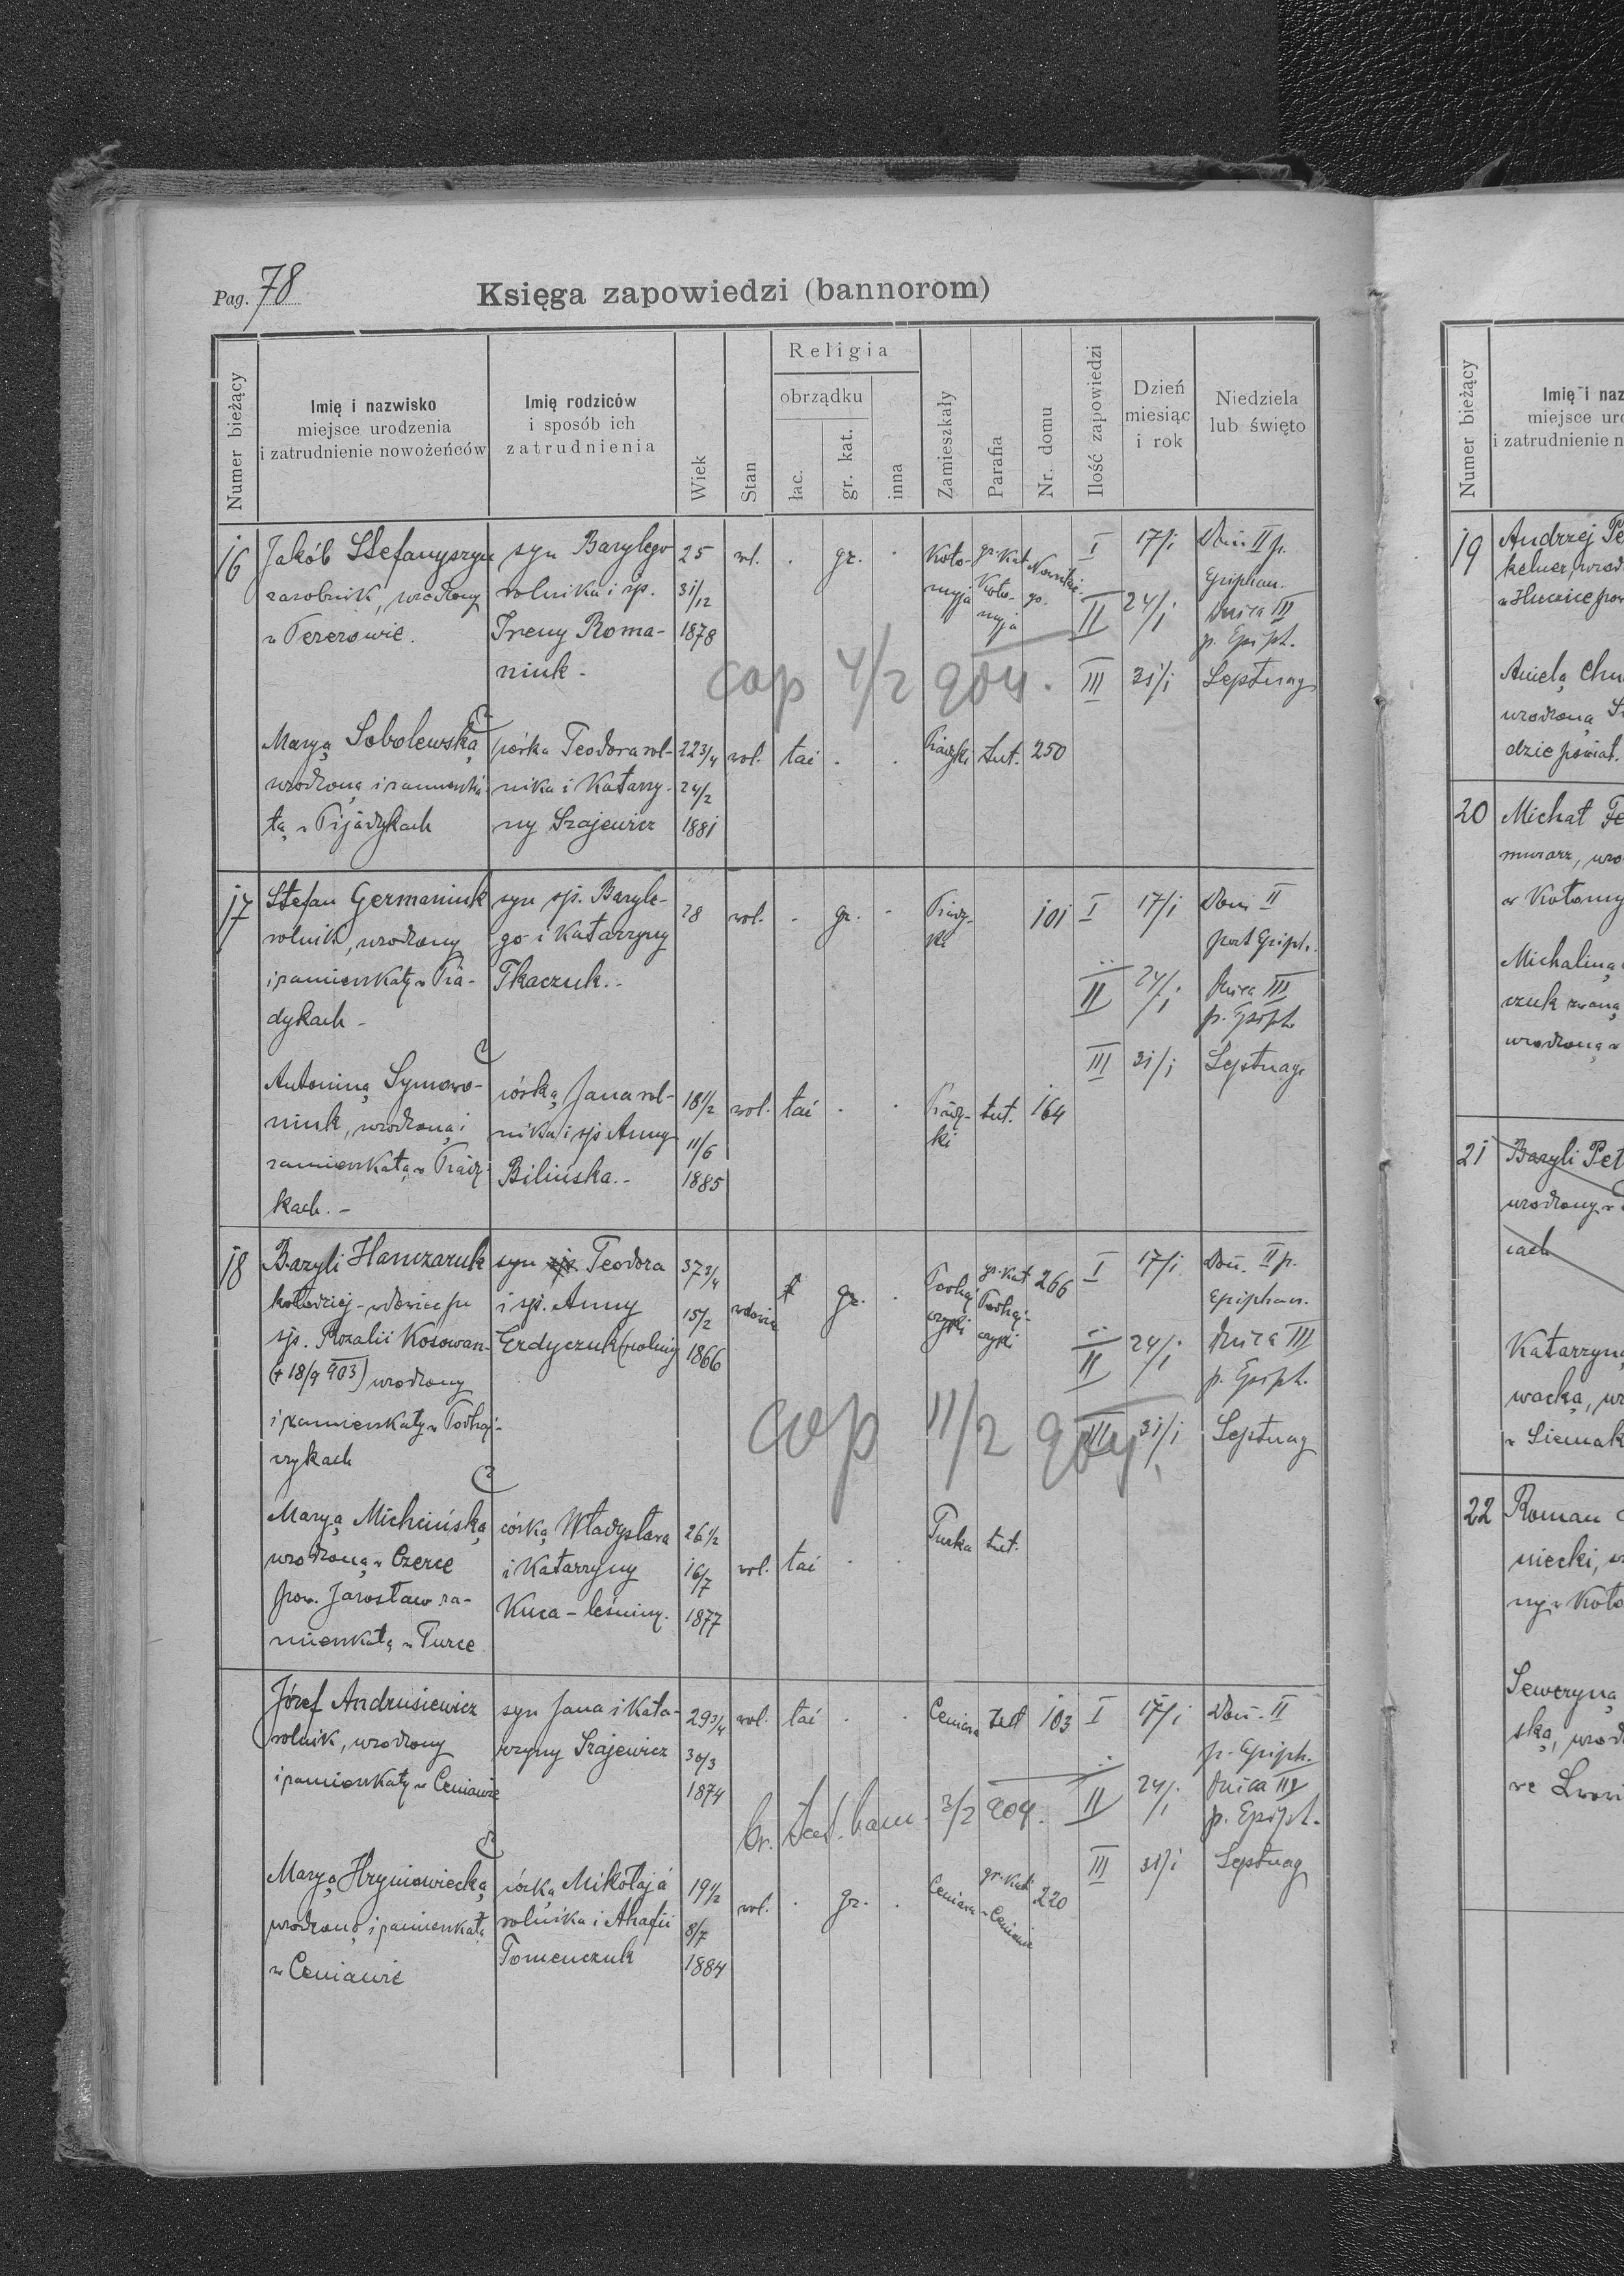 Pag. 78
Księga zapowiedzi (bannorom)
Numer bieżący
Imię i nazwisko
miejsce urodzenia
i zatrudnienie nowożeńców
Imię rodziców
i sposób ich
zatrudnienia
Wiek
Stan
Religia
obrządku
łac.
gr. kat.
inna
Zamieszkały
Parafia
Nr. domu
Ilość zapowiedzi
Dzień
miesiąc
i rok
Niedziela
lub święto
16
Jakób Stefanyszyn
zarobnik, urodzony
syn Bazylego
rolnika i śp.
Ireny Roma-
niuk -
25
31/12
1878
wol. . gr. .
Koło-
myja
gr. Kat
Koło-
myja
I 17/i Dom II p.
Epiphan.
II 24/i Dnica III
p. Epiph.
III 31/i Septuag
cop 4/2 904.
Maryą Sobolewską
urodzoną i zamieszka-
łą w Pijadykach
córka Teodora rol-
nika i Katarzy-
ny Szajewicz
22 3/4
24/2
1881
wol. łać . .
Piadyki tut. 250
17
Stefan Germaniuk
rolnik, urodzony
i zamieszkały w Pia-
dykach -
syn śp. Bazyle-
go i Katarzyny
Tkaczuk. -
28
wol. . gr. .
Piady-
ki
101
I 17/i Dom II
post Epiph.
II 24/i Dnica III
p. Epiph
III 31/i Septuag.
Antoniną Symowo-
niuk, urodzoną i
zamieszkałą w Piady-
kach. -
córką Jana rol-
nika i śp Anny
Bilińska. -
18 1/2
11/6
1885
wol. łać . .
Piady-
ki
tut. 164
18
Bazyli Hanczaruk
kołodziej - wdowiec po
śp. Rozalii Kosowan-
(+ 18/9 903) urodzony
i zamieszkały w Podhaj-
czykach
syn śp. Teodora
i śp. Anny
Erdyczuk (rolnicy
37 3/4
15/2
1866
wdowiec gr. .
Podhaj
czyki
gr. Kat
Podhaj-
czyki
266
I 17/i Dom. II p.
Epiphan.
II 24/i Dnica III
p. Epiph.
III 31/i Septuag
cop 11/2 904
Maryą Michcińską
urodzoną w Czerce
pow. Jarosław za-
mieszkałą w Turce
córką Władysława
i Katarzyny
Kuca - leśniczy.
26 1/2
16/7
1877
wol. łać . .
Turka tut.
Józef Andrusiewicz
rolnik, urodzony
i zamieszkały w Ceniawie
syn Jana i Kata-
rzyny Szajewicz
29 3/4
30/3
1874
wol. łać . .
Ceniawa tut 103
I 17/i Dom. II
p. Epiph.
II 24/i Dnica III
p. Epiph.
III 31/i Septuag
3/2 904.
Maryą Hryniowiecką
urodzoną i zamieszkałą
w Ceniawie
córką Mikołaja
rolnika i Ahafii
Tomenczuk
19 1/2
8/7
1884
wol. . gr. .
Ceniawa
gr. Kat
w Ceniawie
220
Numer bieżący
Imię i naz
miejsce uro
i zatrudnienie n
19
Andrzej Pe
kelner, urod
Anielą Chu
urodzoną S
dzie powiat.
20
Michał Fe
murarz, uro
w Kołomy
Michaliną
czuk zwaną
urodzoną w
21
Bazyli Pet
urodzony w
cach
Katarzyną
wacką, ur
w Siemak
22
Roman
niecki, u
ny w Koło
Seweryną
ską, urod
we Lwowi